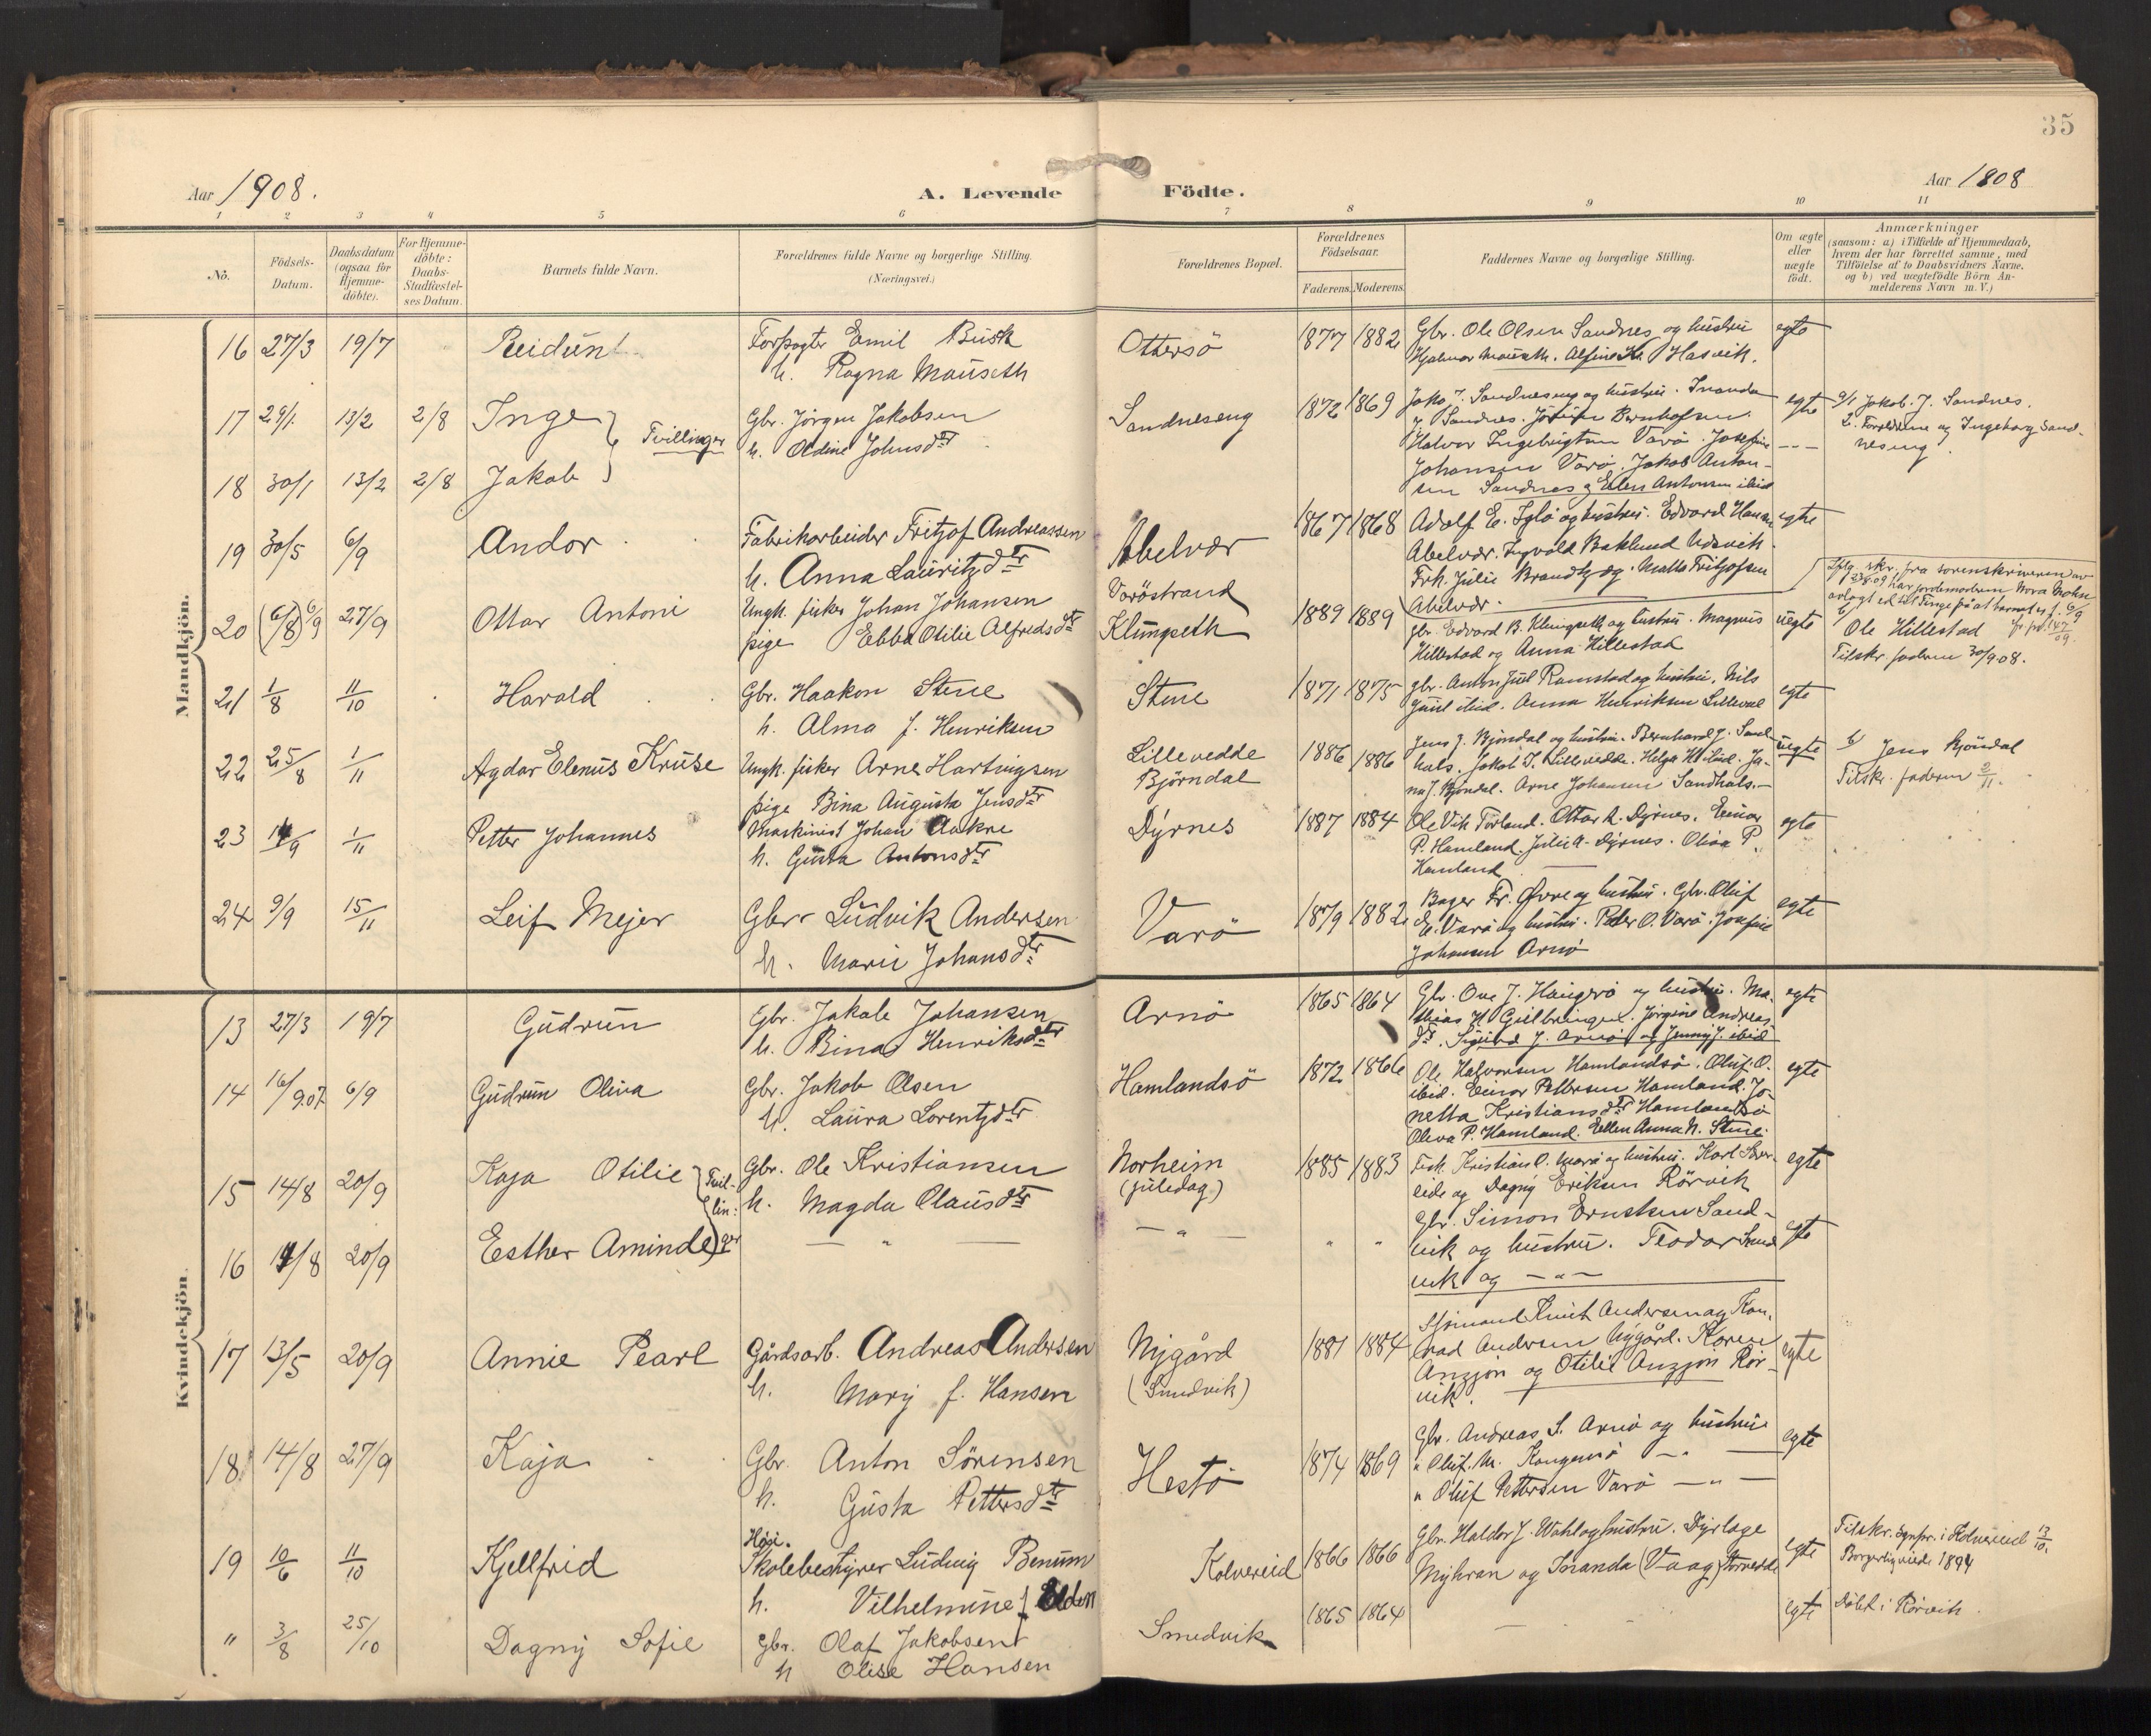 35
Aar 1908.
A. Levende Födte.
Aar 1808
1 2 3 4 5 6 7 8 9 10 11
No.
Födsels-Datum.
Daabsdatum (ogsaa for Hjemme-döbte).
For Hjemme-döbte: Daabs-Stadfæstel-ses Datum.
Barnets fulde Navn.
Forældrenes fulde Navne og borgerlige Stilling.
(Næringsvei.)
Forældrenes Bopæl.
Forældrenes Födselsaar.
Faderens. Moderens.
Faddernes Navne og borgerlige Stilling.
Om ægte eller uægte födt.
Anmærkninger
(saasom: a) i Tilfælde af Hjemmedaab,
hvem der har forrettet samme, med
Tilföielse af to Daabsvidners Navne,
og b) ved uægtefödte Börn An-
melderens Navn m. V.)
Mandkjön.
16 27/3 19/7 Reidun Forpagter Emil Busk Ottersö 1877 1882 Gbr. Ole Olsen Sandnes og hustru egte
h. Ragna Mauseth Hjalmar Mauseth. Alfine Kr. Hasvik.
17 29/1 13/2 2/8 Inge Tvillinger Gbr. Jörgen Jakobsen Sandneseng 1872 1869 Jakob J. Sandneseng og hustru. Inanda egte a/ Jakob J. Sandnes.
h. Oldine Johnsdtr Sandnes. Bernhofsen 2. Forældrene og Ingeborg Sand-
Halvor Ingebrigtsen Varö. Josefine neseng.
18 30/1 13/2 2/8 Jakob Johansen Varö. Jakob Anton-
sen Sandnes og Ellen Antonsen ibid
19 30/5 6/9 Andor Fabrikarbeider Fritjof Andreassen Abelvær 1867 1868 Adolf E. Iglö og hustru. Edvard Hansen egte
h. Anna Lauritzdtr Abelvær. Ingvald Baklund Udsvik.
Frk. Julie Brandtzæg. Malla Fritjofsen
Abelvær.
20 (6/8) 6/9 27/9 Ottar Antoni Ungk. fisker Johan Johansen Varöstrand 1889 1889 Gbr. Edvard B. Klungseth og hustru. Magnus uegte
pige Ebba Otilie Alfredsdtr Klungseth Hillestad og Anna Hillestad
Iflg. skr. fra sorenskriveren av
har jordemoderen Nora Mohn
avlagt ed til Tinge på at barnet er f. 6/9
b/ Ole Hillestad
Tilskr. faderen 30/9 08.
21 1/8 11/10 Harald Gbr. Haakon Stene Stene 1871 1875 Gbr. Anton Juul Ramstad og hustru. Nils egte
h. Alma f. Henriksen Juul ibid. Anna Henriksen Lilleval
22 25/8 1/11 Agdar Elenus Kruse Ungk. fisker Arne Hartvigsen Lillevedde 1886 1886 Jens J. Bjöndal og hustru. Bernhard J. Sand- uegte b/ Jens Bjöndal
pige Bina Augusta Jensdtr Björndal hals. Jakob J. Lillevedde. Helga ibid. Ja- Tilskr. faderen 2/11.
na J. Bjöndal. Arne Johansen Sandhals.
23 14/9 1/11 Petter Johannes Maskinist Johan Aakre Dyrnes 1887 1884 Ole Vik Torland. Ottar R. Dyrnes. Einar egte
h. Gusta Antonsdtr P. Hamland. Julie A. Dyrnes. Oliva P.
Hamland
24 9/9 15/11 Leif Mejer Gbr. Ludvik Andersen Varö 1879 1882 Bager Fr. Övre og hustru. Gbr. Oluf egte
h. Marie Johansdtr E. Varö og hustru. Peder O. Varö. Josefine
Johansen Arnö
Kvindekjön.
13 27/3 19/7 Gudrun Gbr. Jakob Johansen Arnö 1865 1864 Gbr. Ove J. Haugerö og hustru. Ma- egte
h. Bina Henriksdtr thias H. Gulbringen. Jörgine Andreas
dtr. Sigurd J. Arnö og Jenny J. ibid
14 16/9.07 6/9 Gudrun Oliva Gbr. Jakob Olsen Hamlandsö 1872 1866 Ole Halvorsen Hamlandsö. Oluf O. egte
h. Laura Lorentzdtr ibid. Einar Pettersen Hamland. Jo-
netta Kristiansdtr Hamlandsö
Oliva P. Hamland. Ellen Anna N. Stene.
15 14/8 20/9 Kaja Otilie Tvil-lin-ger Gbr. Ole Kristiansen Norheim 1885 1883 Fisk. Kristian O. Marö og hustru. Karl egte
h. Magda Olausdtr (Juledag) og Dagny Eriksen Rörvik
16 14/8 20/9 Eesther Aminde — " — — " — " " Gbr. Simon Ernstsen Sand- egte
vik og hustru. Teodor Sand
vik og — " —
17 13/5 20/9 Annie Pearl Gårdsarb. Andreas Andersen Nygård 1881 1884 Sjömand Knut Andersen og Kon- egte
h. Mary f. Hansen (Smedvik) rad Andersen Nygård. Karen
Anzjön og Otilie Anzjön Rör-
vik.
18 14/8 27/9 Kaja Gbr. Anton Sörensen Hestö 1874 1869 Gbr. Andreas S. Arnö og hustru egte
h. Gusta Pettersdtr " Oluf M. Kongensö — " —
" Oluf Pettersen Varö — " —
19 10/6 11/10 Kjellfrid Höi. Skolebestyrer Ludvig Benum Kolvereid 1866 1866 Gbr. Haldor J. Wahl og hustru. Dyrlæge egte Tilskr. sogepr. i Kolvereid 13/10.
h. Vilhelmine f. Elden Myhran og Inanda (Vaag) Storvedde Borgerlig viede 1894
" 3/8 25/10 Dagny Sofie Gbr. Olaf Jakobsen Smedvik 1865 1864 — egte Döbt i Rörvik.
h Olise Hansen